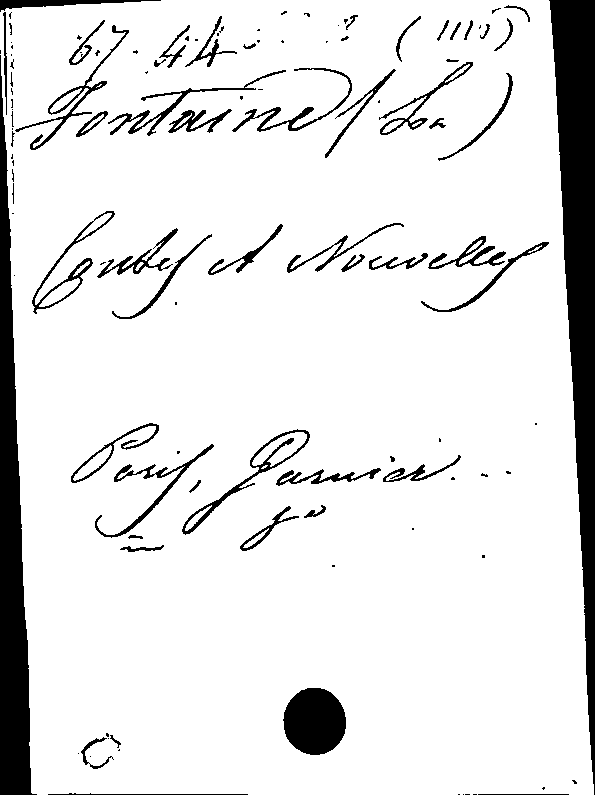 67. 44 (1115)
Fontaine (La)
Contes et Nouvelles
Paris, Garnier...